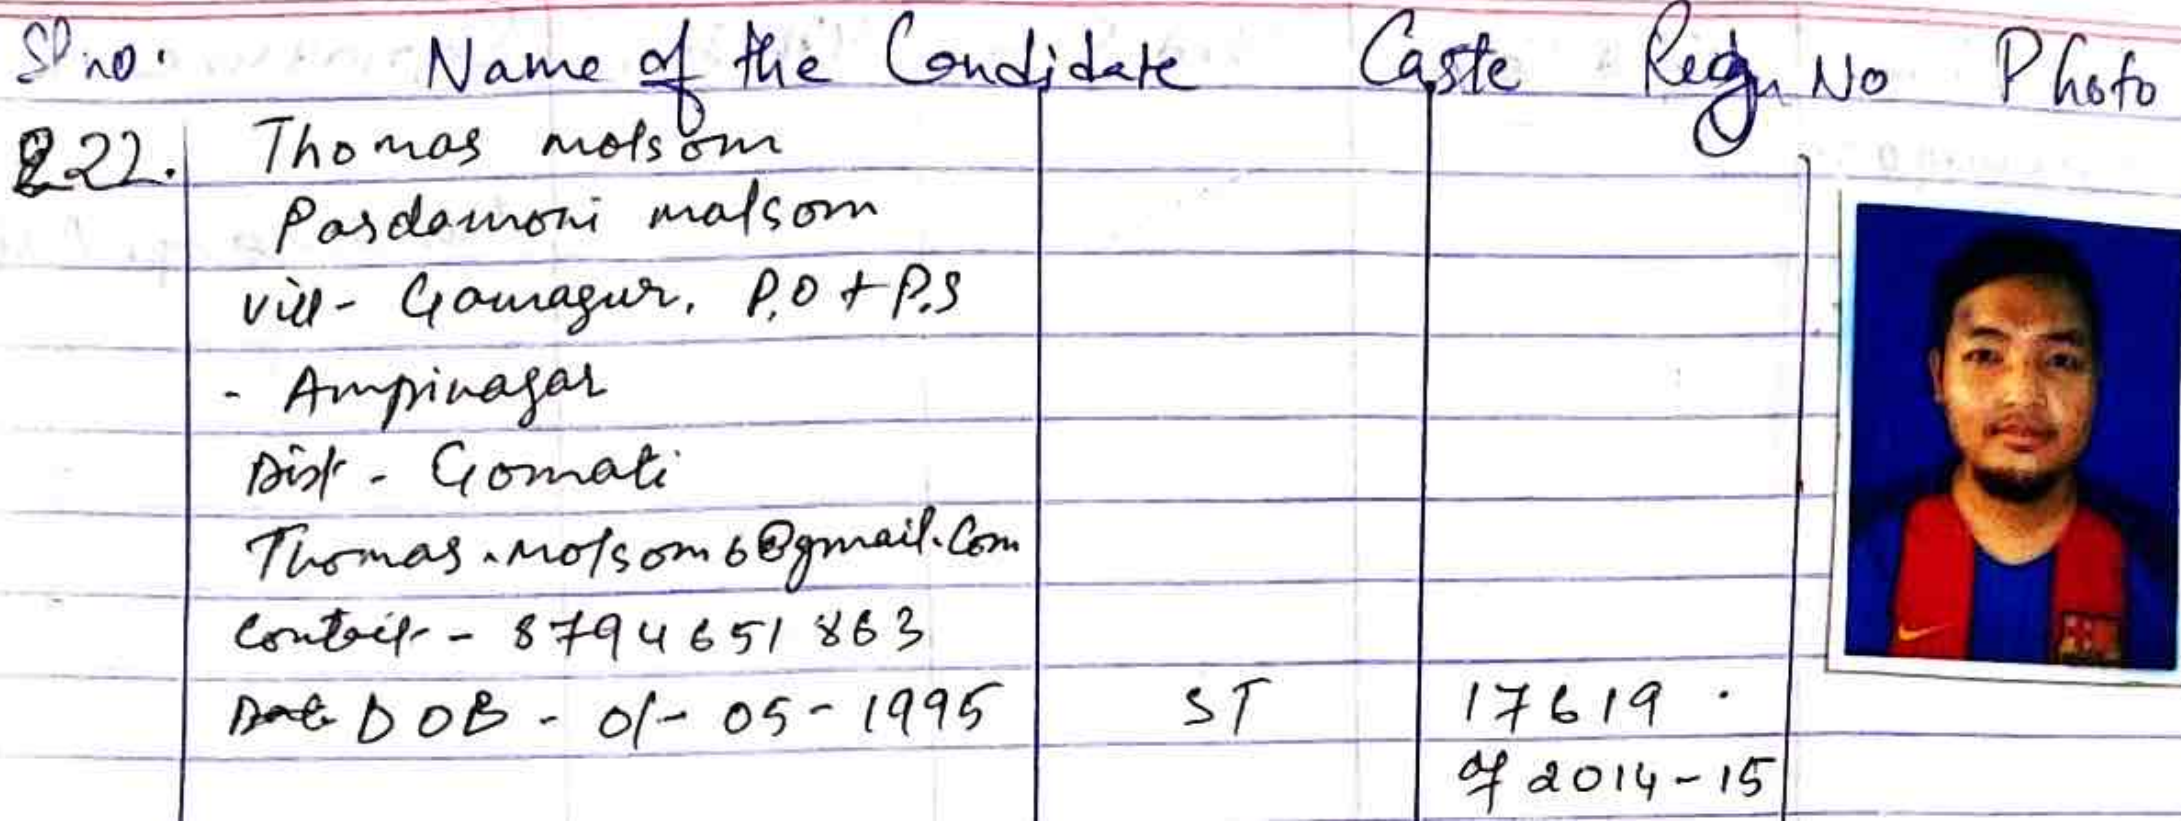 Sl no. Name of the Candidate Caste Regn No Photo
222. Thomas molsom
Pardamoni malsom
vill- Gamagur. P.O + P.S
- Ampinagar
Dist - Gomati
Thomas.molsom6@gmail.com
- 8794651863
DOB - 01-05-1995 ST 17619
of 2014-15